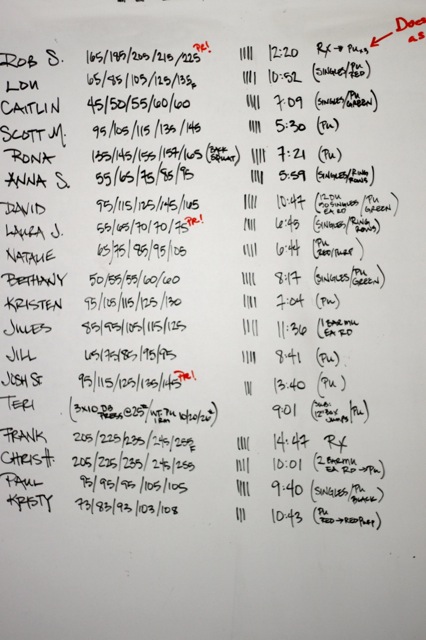 Does
as
ROB S. 165/185/205/215/225 PR! |||| 12:20 RX → PU x3
LOU 65/85/105/125/135F |||| 10:52 (SINGLES/PU RED)
CAITLIN 45/50/55/60/60 |||| 7:09 (SINGLES/PU GREEN)
SCOTT M. 95/105/115/135/145 |||| 5:30 (PU)
RONA 135/145/155/157/165 (BACK SQUAT) |||| 7:21 (PU)
ANNA S. 55/65/75/85/95 |||| 5:59 (SINGLES/RING ROWS)
DAVID 95/115/125/145/165 |||| 10:47 (12 DU 50 SINGLES/PU EA RD GREEN)
LAURA J. 55/65/70/70/75 PR! |||| 6:45 (SINGLES/RING ROWS)
NATALIE 65/75/85/95/105 |||| 6:44 (PU RED/PURP)
BETHANY 50/55/55/60/60 |||| 8:17 (SINGLES/PU GREEN)
KRISTEN 95/105/115/125/130 |||| 7:04 (PU)
JULES 85/95/105/115/125 |||| 11:36 (1 BAR MU EA RD
JILL 65/75/85/95/95 |||| 8:41 (PU)
JOSH ST 95/115/125/135/145 PR! ||| 13:40 (PU)
TERI (3x10 DB PRESS @ 25# /WT. PU 1RM 10/20/26#) 9:01 (12" BOX JUMPS/PU)
FRANK 205/225/235/245/255F |||| 14:47 RX
CHRIS H. 205/225/235/245/255 |||| 10:01 (2 BAR MU EA RD → PU)
PAUL 85/95/95/105/105 |||| 9:40 (SINGLES/PU BLACK)
KRISTY 73/83/93/103/108 ||| 10:43 (PU RED → RED PURP)